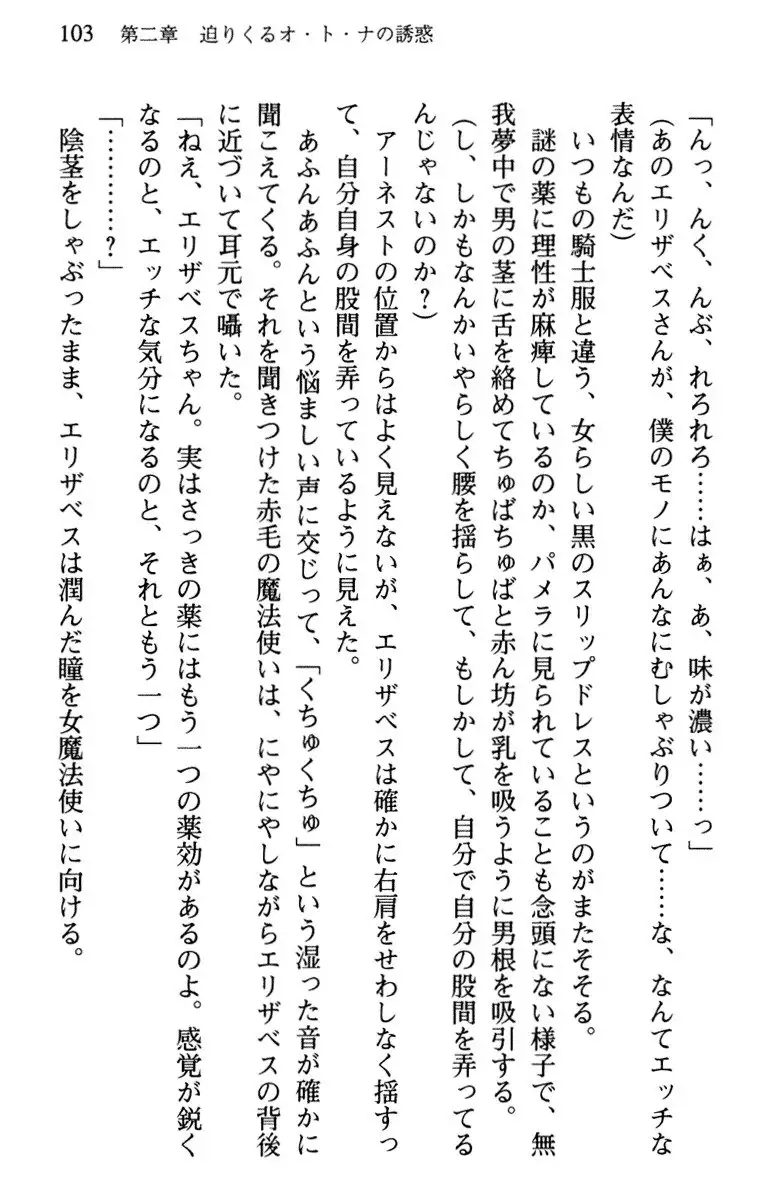 103　第二章　迫りくるオ・ト・ナの誘惑
「んっ、んく、んぶ、れろれろ……はぁ、あ、味が濃い……っ」
（あのエリザベスさんが、僕のモノにあんなにむしゃぶりついて……な、なんてエッチな
表情なんだ）
いつもの騎士服と違う、女らしい黒のスリップドレスというのがまたそそる。
謎の薬に理性が麻痺しているのか、パメラに見られていることも念頭にない様子で、無
我夢中で男の茎に舌を絡めてちゅばちゅばと赤ん坊が乳を吸うように男根を吸引する。
（し、しかもなんかいやらしく腰を揺らして、もしかして、自分で自分の股間を弄ってる
んじゃないのか？）
アーネストの位置からはよく見えないが、エリザベスは確かに右肩をせわしなく揺すっ
て、自分自身の股間を弄っているように見えた。
あふんあふんという悩ましい声に交じって、「くちゅくちゅ」という湿った音が確かに
聞こえてくる。それを聞きつけた赤毛の魔法使いは、にやにやしながらエリザベスの背後
に近づいて耳元で囁いた。
「ねえ、エリザベスちゃん。実はさっきの薬にはもう一つの薬効があるのよ。感覚が鋭く
なるのと、エッチな気分になるのと、それともう一つ」
「…………？」
陰茎をしゃぶったまま、エリザベスは潤んだ瞳を女魔法使いに向ける。